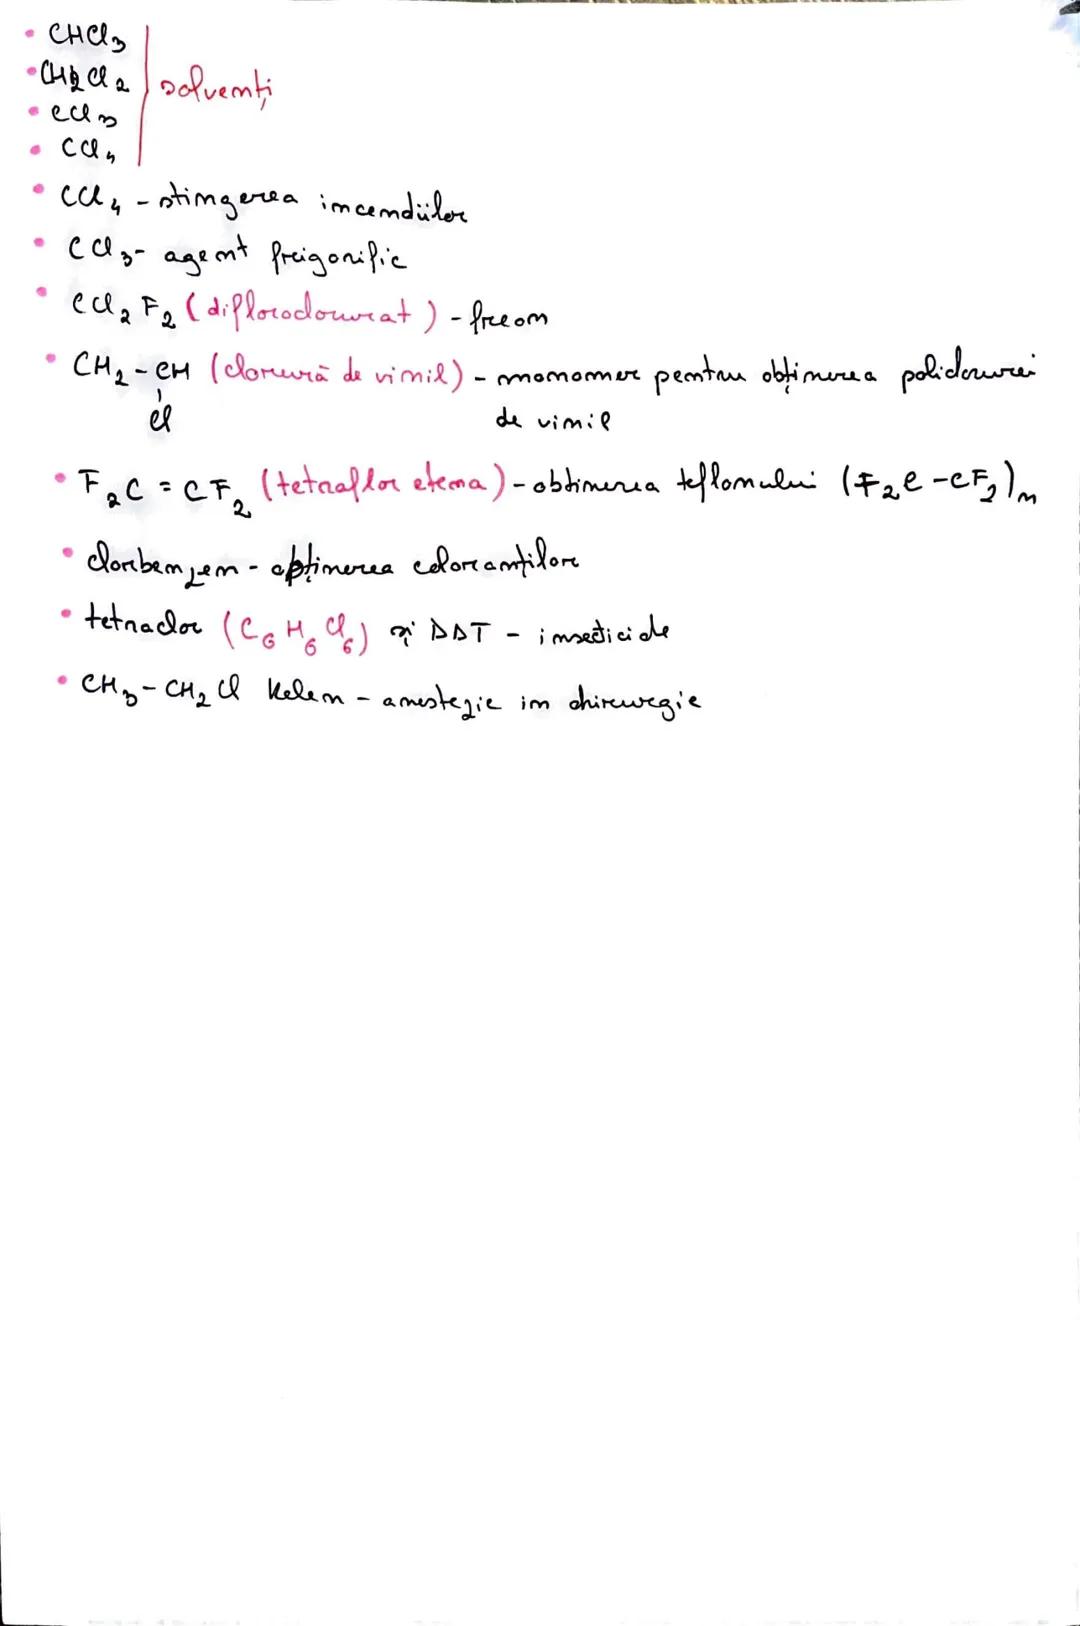 • CHCl3
• CH2Cl2 solvenți
• CCl3
• CCl4
• CCl4 - stingerea incendiilor
• CCl3 - agent freigorific
• CCl2F2 (diflorodoclorurat) - freon
• CH2 - CH (clorură de vinil) - monomer pentru obținerea policlorurei
Cl de vinil
• F2C = CF2 (tetraflor etena) - obtinerea teflonului (F2C - CF2)n
• clorbenzen - obținerea coloranților
• tetraclor (C6H6Cl6) și DDT - insecticide
• CH3 - CH2Cl Kelen - anestezie in chirurgie